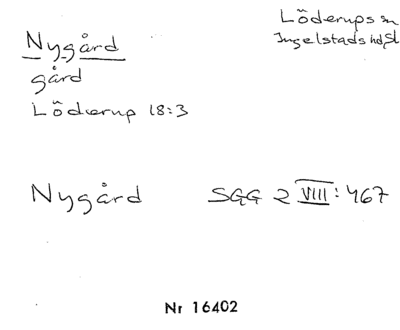 Nygård
gård
Löderup 18:3
Löderups sn
Ingelstads hd, Sk
Nygård SGG 2 VIII: 467
Nr 16402